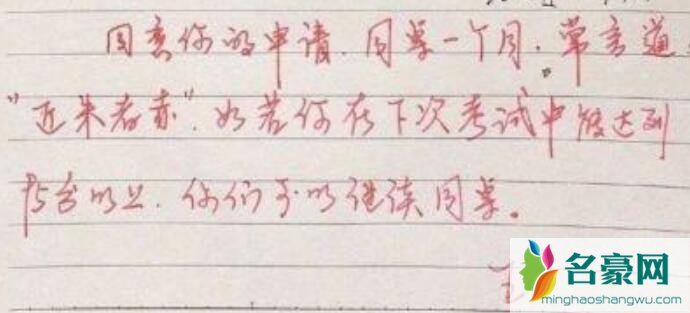 同意你的申请.同桌一个月.常言道.
"近朱者赤".如若你在下次考试中能达到
75分以上.你们可以继续同桌。
名豪网
minghaoshangwu.com